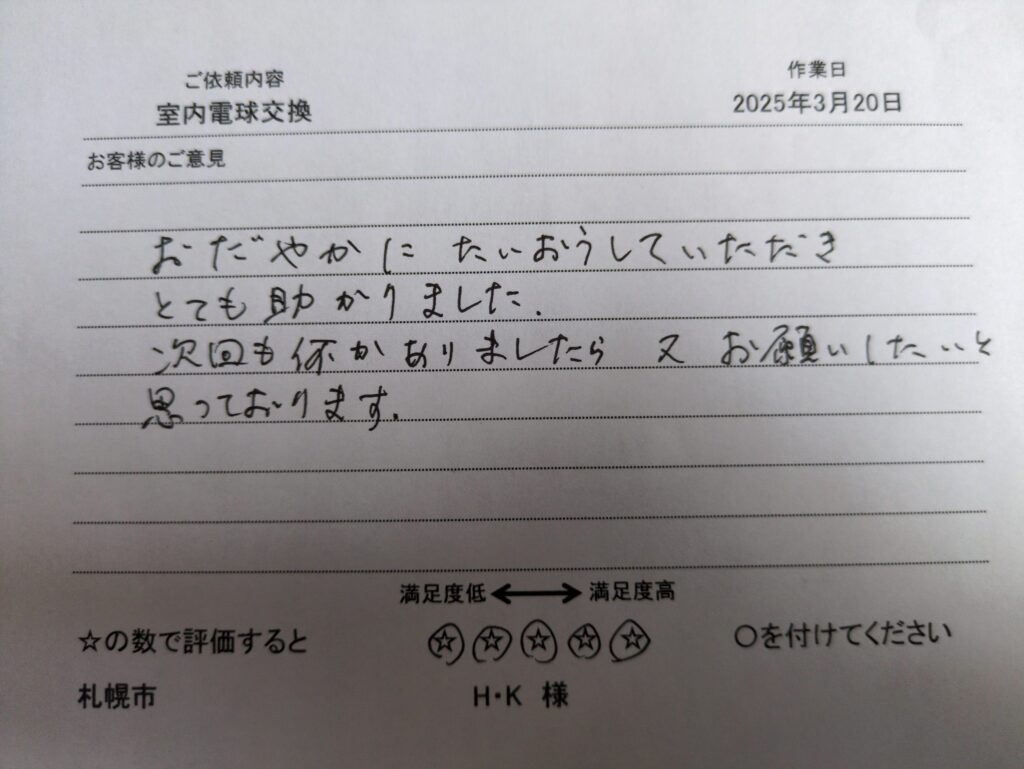 ご依頼内容
作業日
室内電球交換
2025年3月20日
お客様のご意見
おだやかに たいおうしていただき
とても助かりました.
次回も何かありましたら 又 お願いしたいと
思っております.
満足度低 ↔ 満足度高
☆の数で評価すると ☆☆☆☆☆ 〇を付けてください
札幌市 H・K 様